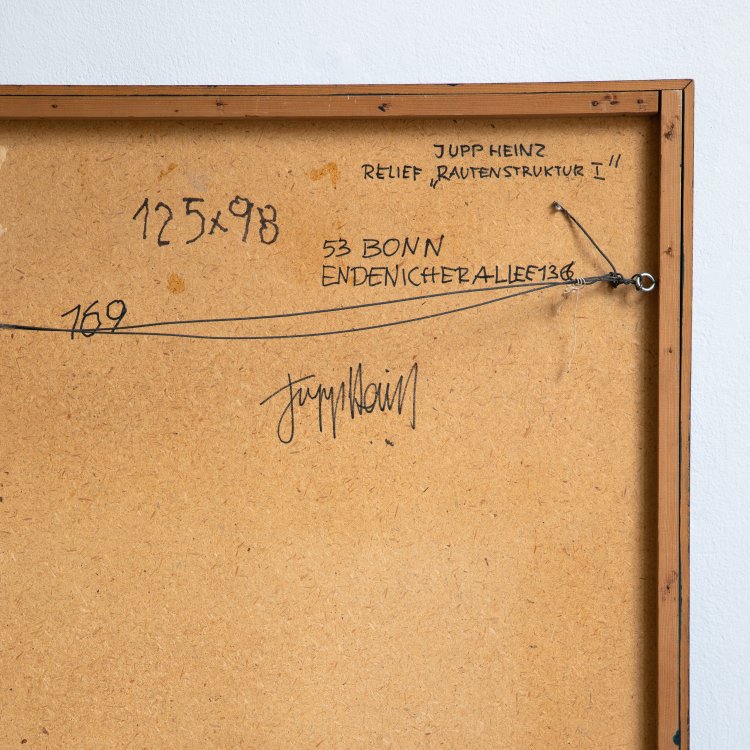 JUPP HEINZ
RELIEF „RAUTENSTRUKTUR I"
125x98
53 BONN
ENDENICHERALLEE136
169
Jupp Heinz